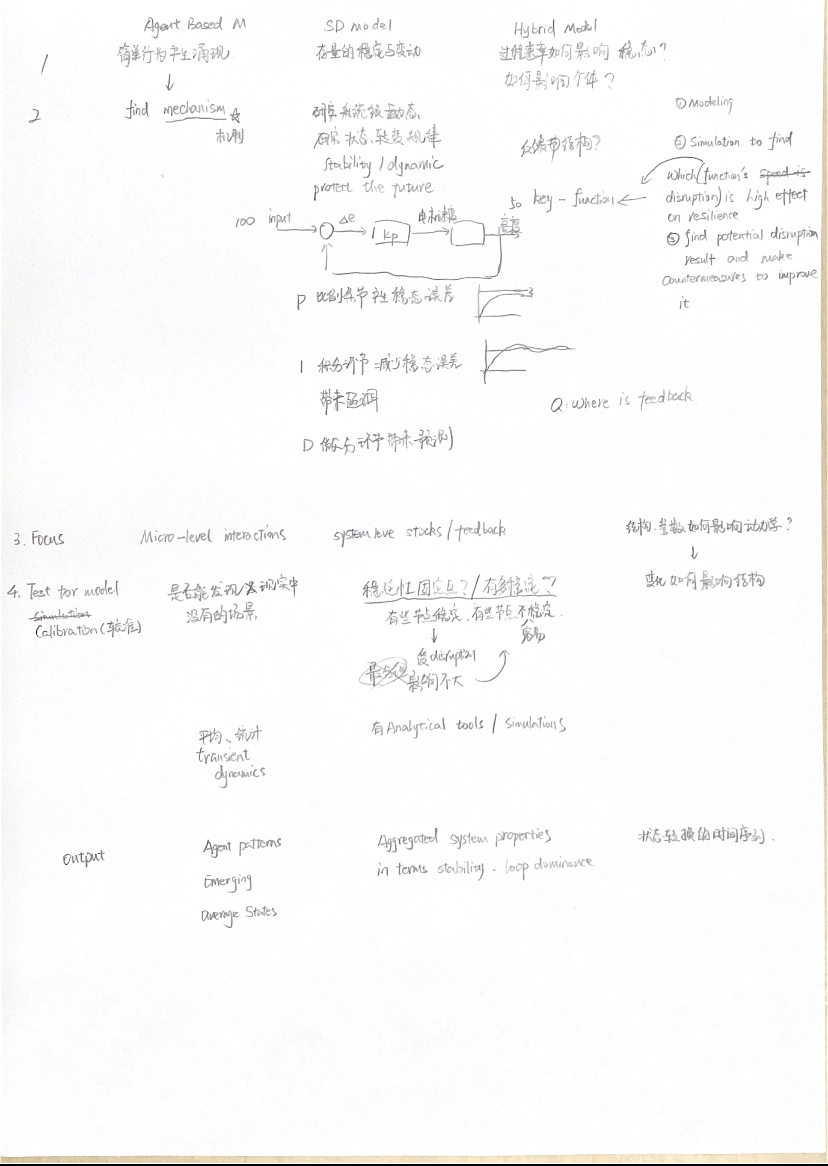 Agent Based M
SD model
Hybrid Model
1
简单行为产生涌现
存量的稳定与变动
过程速率如何影响稳态?
如何影响个体?
2
find mechanism ☆
机制
研究系统级动态,
研究状态,转变规律
Stability / dynamic
protect the future
反馈带结构?
① Modeling
② Simulation to find
which (function's ~~speed is~~
disruption) is high effect
on resilience
③ find potential disruption
result and make
countermeasures to improve
it
50 key-function ←
100 input
Δe
kp
高度
P 比例环节产生稳态误差
I 积分环节 减少稳态误差
带来
D 微分环节带来预测
Q: Where is feedback
3. Focus
Micro-level interactions
system leve stocks / feedback
结构、参数如何影响动力学?
↓
变化如何影响结构
4. Test for model
~~Simulation~~
Calibration (较准)
是否能发现现实中
没有的场景
稳定性固定点? / 有多稳定?
有些节点稳定, 有些节点不稳定.
容易
受disruption
影响不大
平均、统计
transient
dynamics
有Analytical tools / Simulations
Output
Agent patterns
Emerging
average States
Aggregated system properties
in terms stability. loop dominance
状态转换的时间序列.